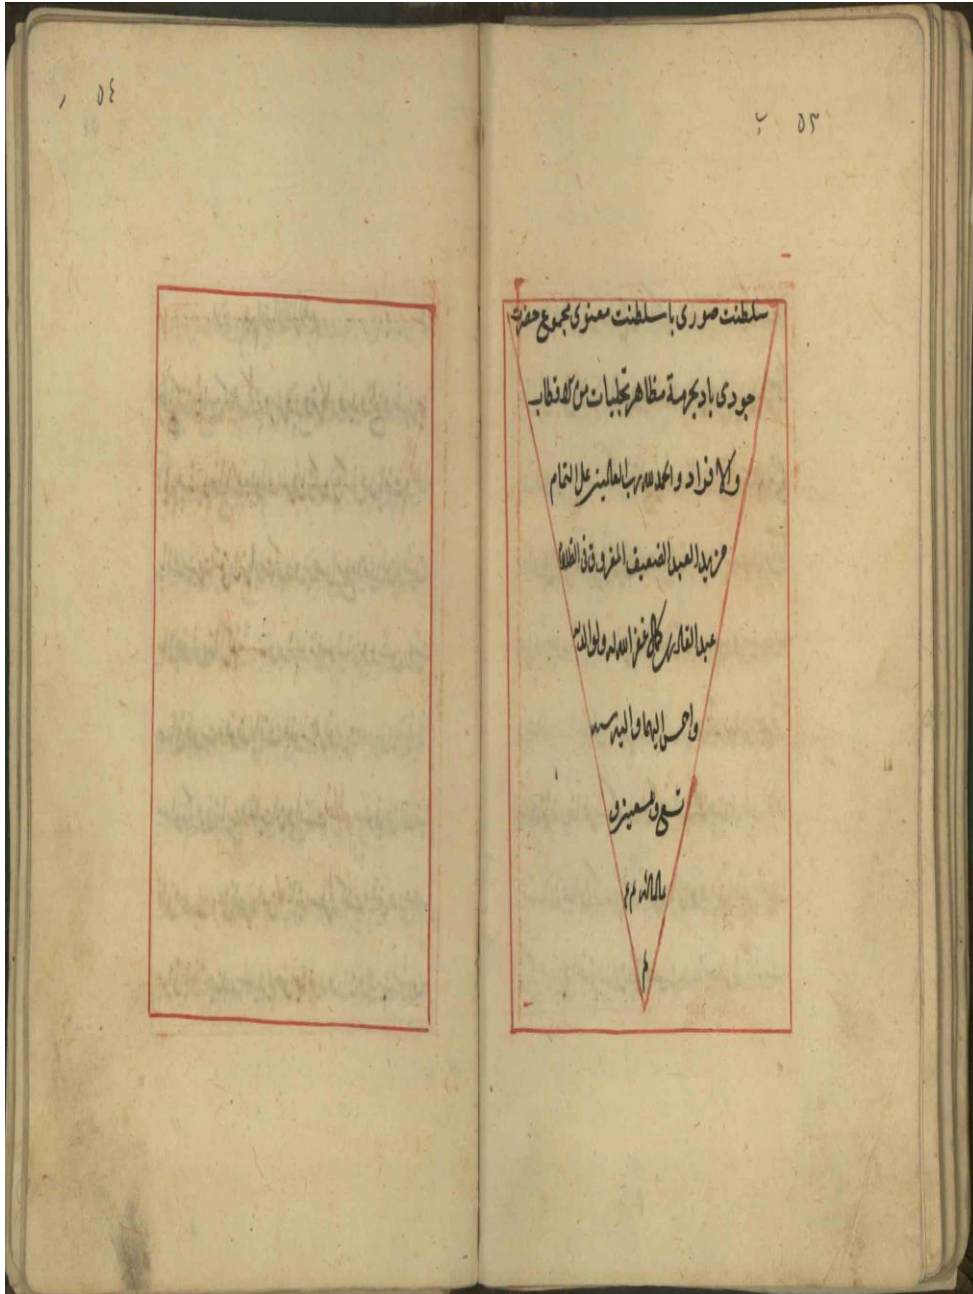 ٥٣ ب
سلطنت صوری با سلطنت معنوی مجموع حضرت
جودی باد بحرمة مظاهر تجلیات من الاقطاب
والافراد والحمد لله رب العالمین علی التمام
من ید العبد الضعیف المغروق فی
عبد القادر غفر الله له ولوالدیه
واحسن الیهما والیه سنه
تسع وتسعین و
م
٥٤ ر